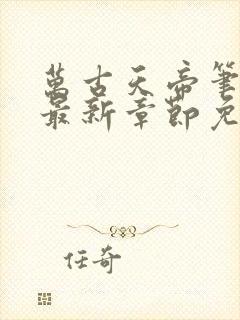 萬古天帝筆
最新章節免
任奇